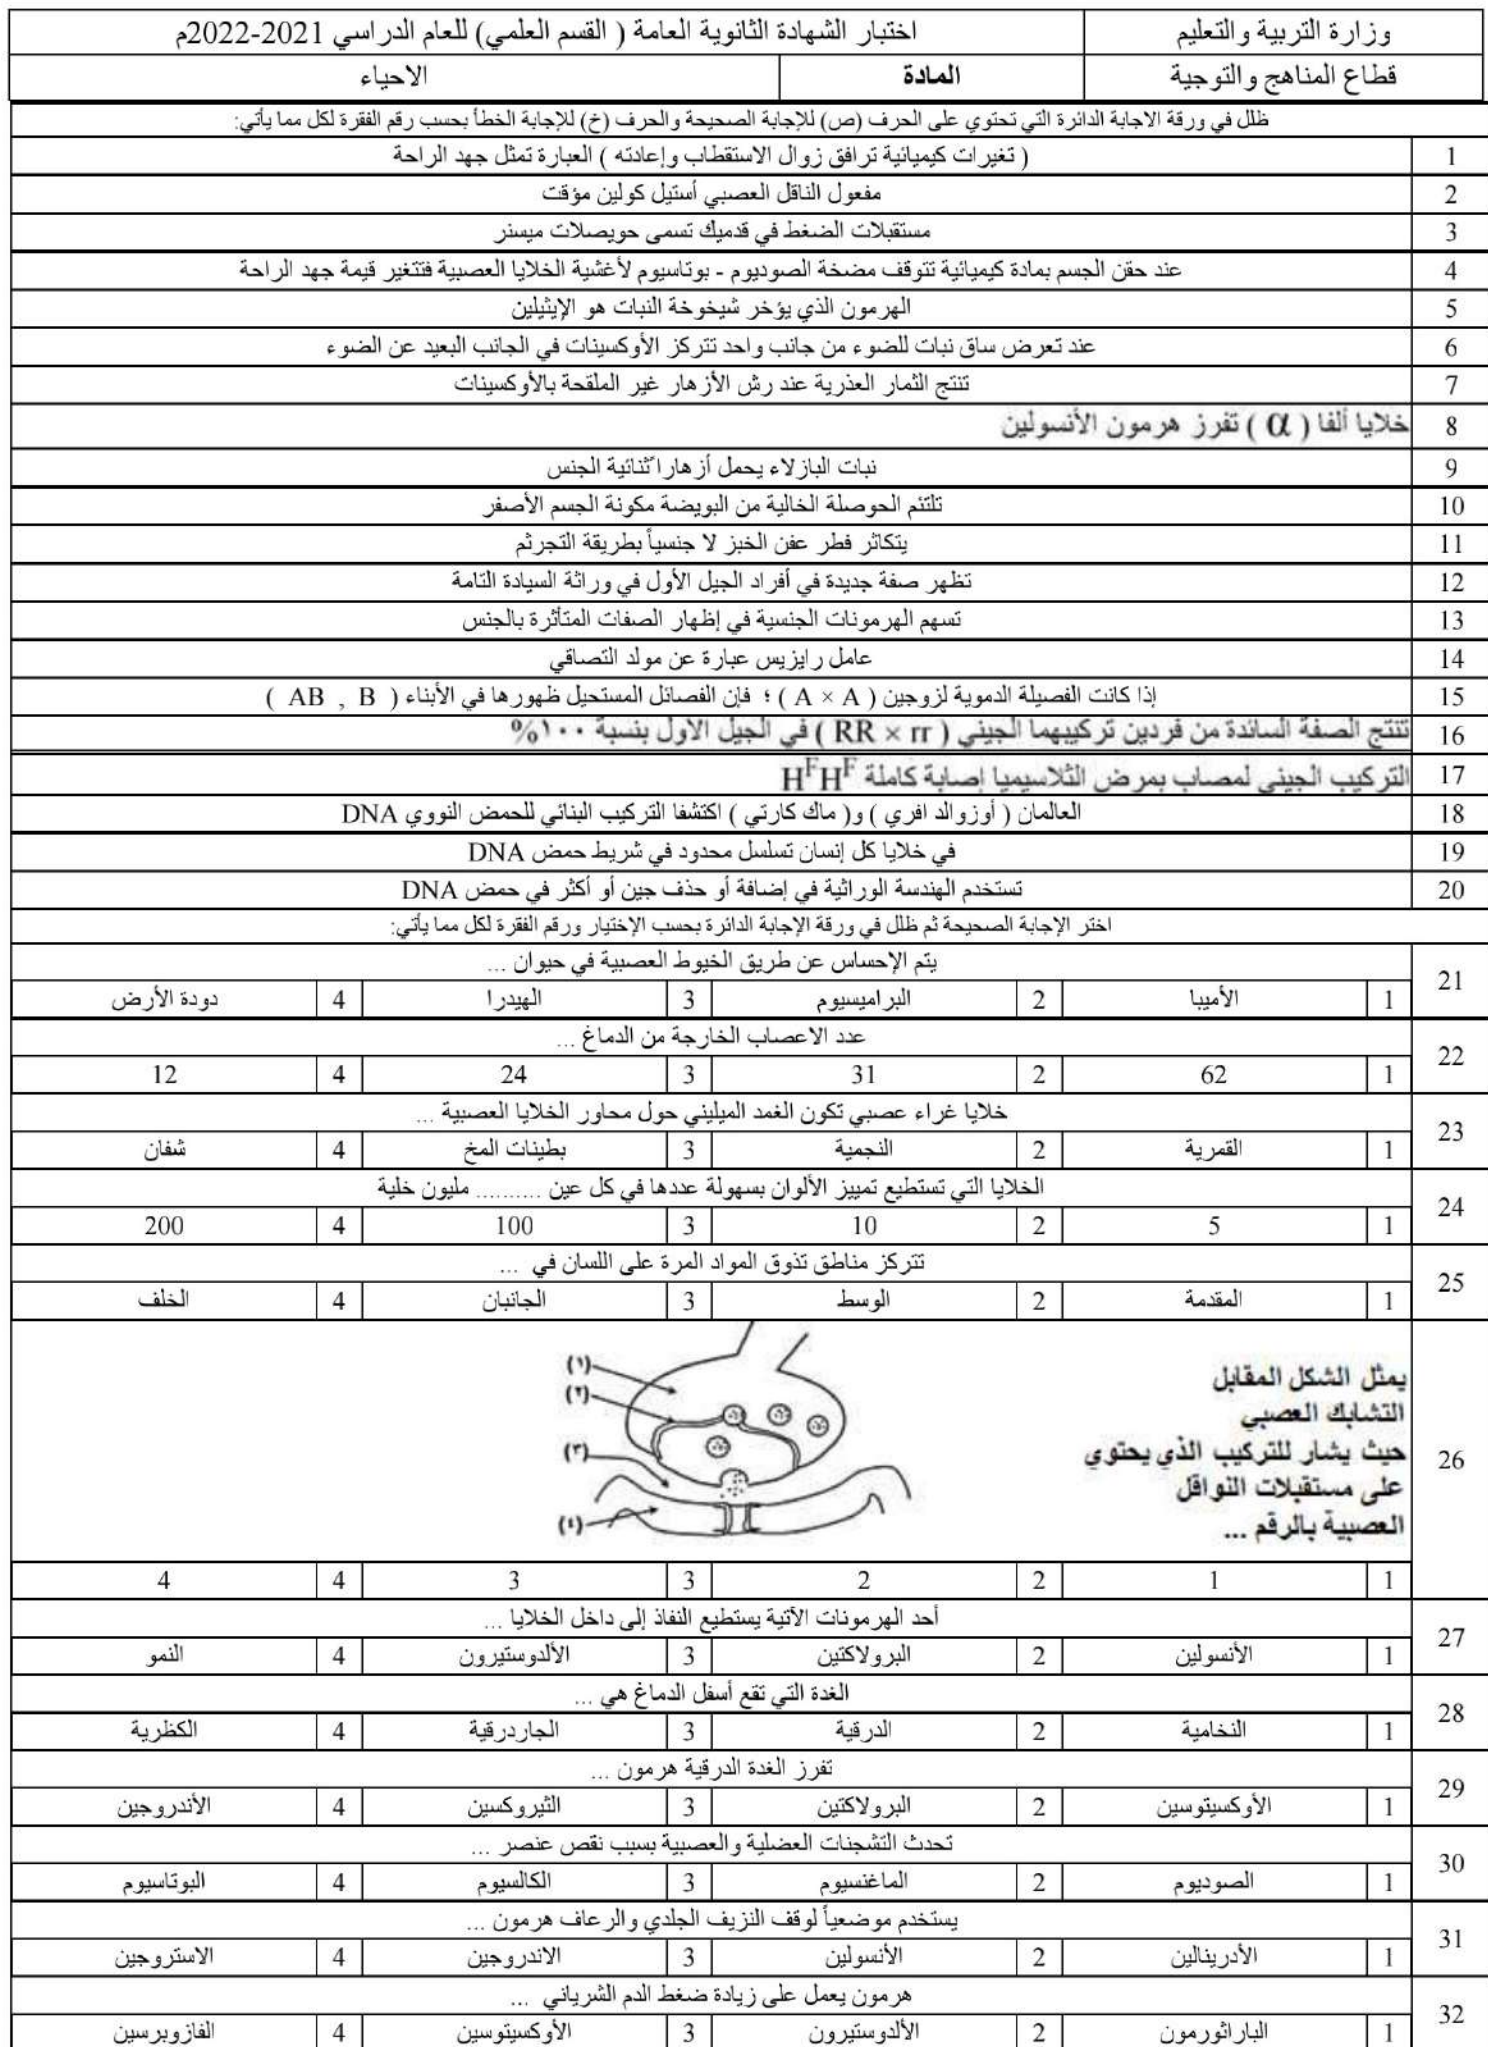 وزارة التربية والتعليم
اختبار الشهادة الثانوية العامة ( القسم العلمي) للعام الدراسي 2021-2022م
قطاع المناهج والتوجية
المادة
الاحياء
ظلل في ورقة الاجابة الدائرة التي تحتوي على الحرف (ص) للإجابة الصحيحة والحرف (خ) للإجابة الخطأ بحسب رقم الفقرة لكل مما يأتي:
1 ( تغيرات كيميائية ترافق زوال الاستقطاب وإعادته ) العبارة تمثل جهد الراحة
2 مفعول الناقل العصبي أستيل كولين مؤقت
3 مستقبلات الضغط في قدميك تسمى حويصلات ميسنر
4 عند حقن الجسم بمادة كيميائية تتوقف مضخة الصوديوم - بوتاسيوم لأغشية الخلايا العصبية فتتغير قيمة جهد الراحة
5 الهرمون الذي يؤخر شيخوخة النبات هو الإيثيلين
6 عند تعرض ساق نبات للضوء من جانب واحد تتركز الأوكسينات في الجانب البعيد عن الضوء
7 تنتج الثمار العذرية عند رش الأزهار غير الملقحة بالأوكسينات
8 خلايا ألفا ( α ) تفرز هرمون الأنسولين
9 نبات البازلاء يحمل أزهاراً ثنائية الجنس
10 تلتئم الحوصلة الخالية من البويضة مكونة الجسم الأصفر
11 يتكاثر فطر عفن الخبز لا جنسياً بطريقة التجرثم
12 تظهر صفة جديدة في أفراد الجيل الأول في وراثة السيادة التامة
13 تسهم الهرمونات الجنسية في إظهار الصفات المتأثرة بالجنس
14 عامل رايزيس عبارة عن مولد التصاقي
15 إذا كانت الفصيلة الدموية لزوجين ( A × A ) ؛ فإن الفصائل المستحيل ظهورها في الأبناء ( AB , B )
16 تنتج الصفة السائدة من فردين تركيبهما الجيني ( RR × rr ) في الجيل الأول بنسبة ١٠٠%
17 التركيب الجيني لمصاب بمرض الثلاسيميا إصابة كاملة HᶠHᶠ
18 العالمان ( أوزوالد افري ) و( ماك كارتي ) اكتشفا التركيب البنائي للحمض النووي DNA
19 في خلايا كل إنسان تسلسل محدود في شريط حمض DNA
20 تستخدم الهندسة الوراثية في إضافة أو حذف جين أو أكثر في حمض DNA
اختر الإجابة الصحيحة ثم ظلل في ورقة الإجابة الدائرة بحسب الإختيار ورقم الفقرة لكل مما يأتي:
21 يتم الإحساس عن طريق الخيوط العصبية في حيوان ...
1 الأميبا 2 البراميسيوم 3 الهيدرا 4 دودة الأرض
22 عدد الاعصاب الخارجة من الدماغ ...
1 62 2 31 3 24 4 12
23 خلايا غراء عصبي تكون الغمد الميليني حول محاور الخلايا العصبية ...
1 القمرية 2 النجمية 3 بطينات المخ 4 شفان
24 الخلايا التي تستطيع تمييز الألوان بسهولة عددها في كل عين .......... مليون خلية
1 5 2 10 3 100 4 200
25 تتركز مناطق تذوق المواد المرة على اللسان في ...
1 المقدمة 2 الوسط 3 الجانبان 4 الخلف
26 يمثل الشكل المقابل
التشابك العصبي
حيث يشار للتركيب الذي يحتوي
على مستقبلات النواقل
العصبية بالرقم ...
(١)
(٢)
(٣)
(٤)
1 1 2 2 3 3 4 4
27 أحد الهرمونات الآتية يستطيع النفاذ إلى داخل الخلايا ...
1 الأنسولين 2 البرولاكتين 3 الألدوستيرون 4 النمو
28 الغدة التي تقع أسفل الدماغ هي ...
1 النخامية 2 الدرقية 3 الجاردرقية 4 الكظرية
29 تفرز الغدة الدرقية هرمون ...
1 الأوكسيتوسين 2 البرولاكتين 3 الثيروكسين 4 الأندروجين
30 تحدث التشجنات العضلية والعصبية بسبب نقص عنصر ...
1 الصوديوم 2 الماغنسيوم 3 الكالسيوم 4 البوتاسيوم
31 يستخدم موضعياً لوقف النزيف الجلدي والرعاف هرمون ...
1 الأدرينالين 2 الأنسولين 3 الاندروجين 4 الاستروجين
32 هرمون يعمل على زيادة ضغط الدم الشرياني ...
1 الباراثورمون 2 الألدوستيرون 3 الأوكسيتوسين 4 الفازوبرسين